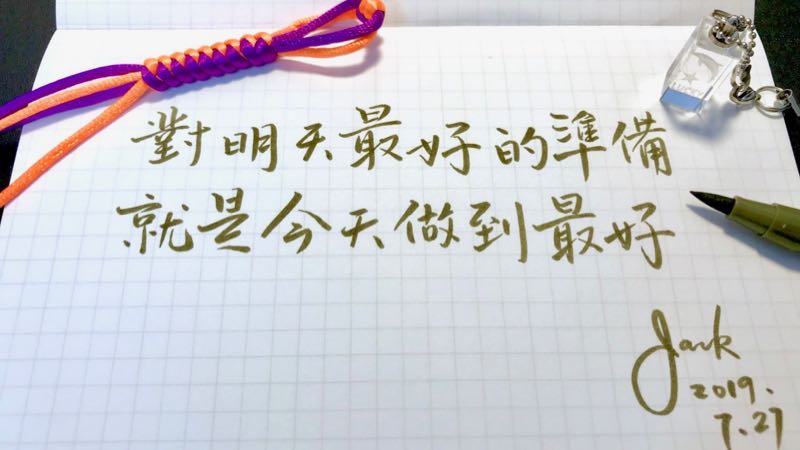 對明天最好的準備
就是今天做到最好
Jack
2019.
7.27